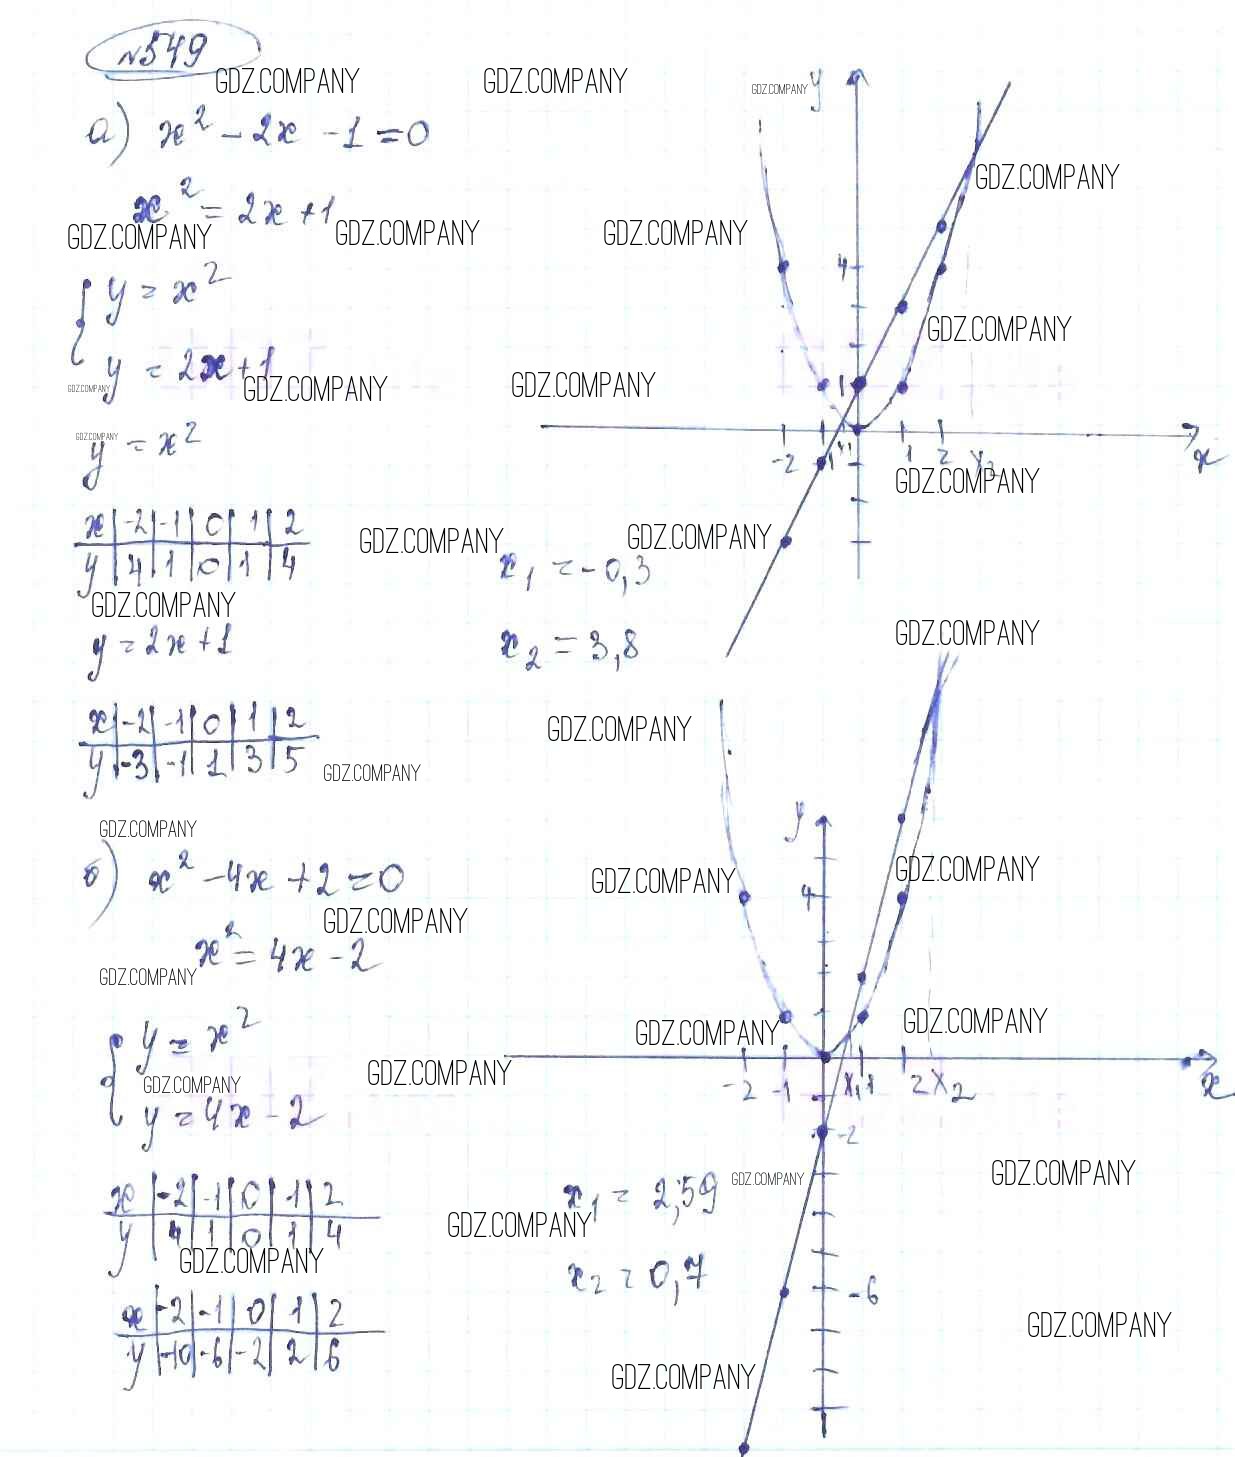 №549
GDZ.COMPANY GDZ.COMPANY GDZ.COMPANY y
а) x² - 2x - 1 = 0
GDZ.COMPANY
x² = 2x + 1
GDZ.COMPANY GDZ.COMPANY GDZ.COMPANY
4
{ y = x²
GDZ.COMPANY
y = 2x + 1
GDZ.COMPANY GDZ.COMPANY GDZ.COMPANY 1
GDZ.COMPANY
y = x²
-2 -1 1 2 x₂ x
GDZ.COMPANY
x | -2 | -1 | 0 | 1 | 2
y | 4 | 1 | 0 | 1 | 4
GDZ.COMPANY GDZ.COMPANY
x₁ = -0,3
GDZ.COMPANY
y = 2x + 1
x₂ = 3,8
GDZ.COMPANY
x | -2 | -1 | 0 | 1 | 2
y | -3 | -1 | 1 | 3 | 5
GDZ.COMPANY
GDZ.COMPANY
GDZ.COMPANY y
б) x² - 4x + 2 = 0
GDZ.COMPANY GDZ.COMPANY
4
GDZ.COMPANY
x² = 4x - 2
GDZ.COMPANY
{ y = x²
GDZ.COMPANY GDZ.COMPANY
GDZ.COMPANY GDZ.COMPANY
-2 -1 x₁ 1 2 x₂ x
y = 4x - 2
-2
GDZ.COMPANY GDZ.COMPANY
x | -2 | -1 | 0 | 1 | 2
y | 4 | 1 | 0 | 1 | 4
x₁ = 2,59
GDZ.COMPANY
GDZ.COMPANY
x₂ = 0,7
-6
x | -2 | -1 | 0 | 1 | 2
y | -10 | -6 | -2 | 2 | 6
GDZ.COMPANY
GDZ.COMPANY